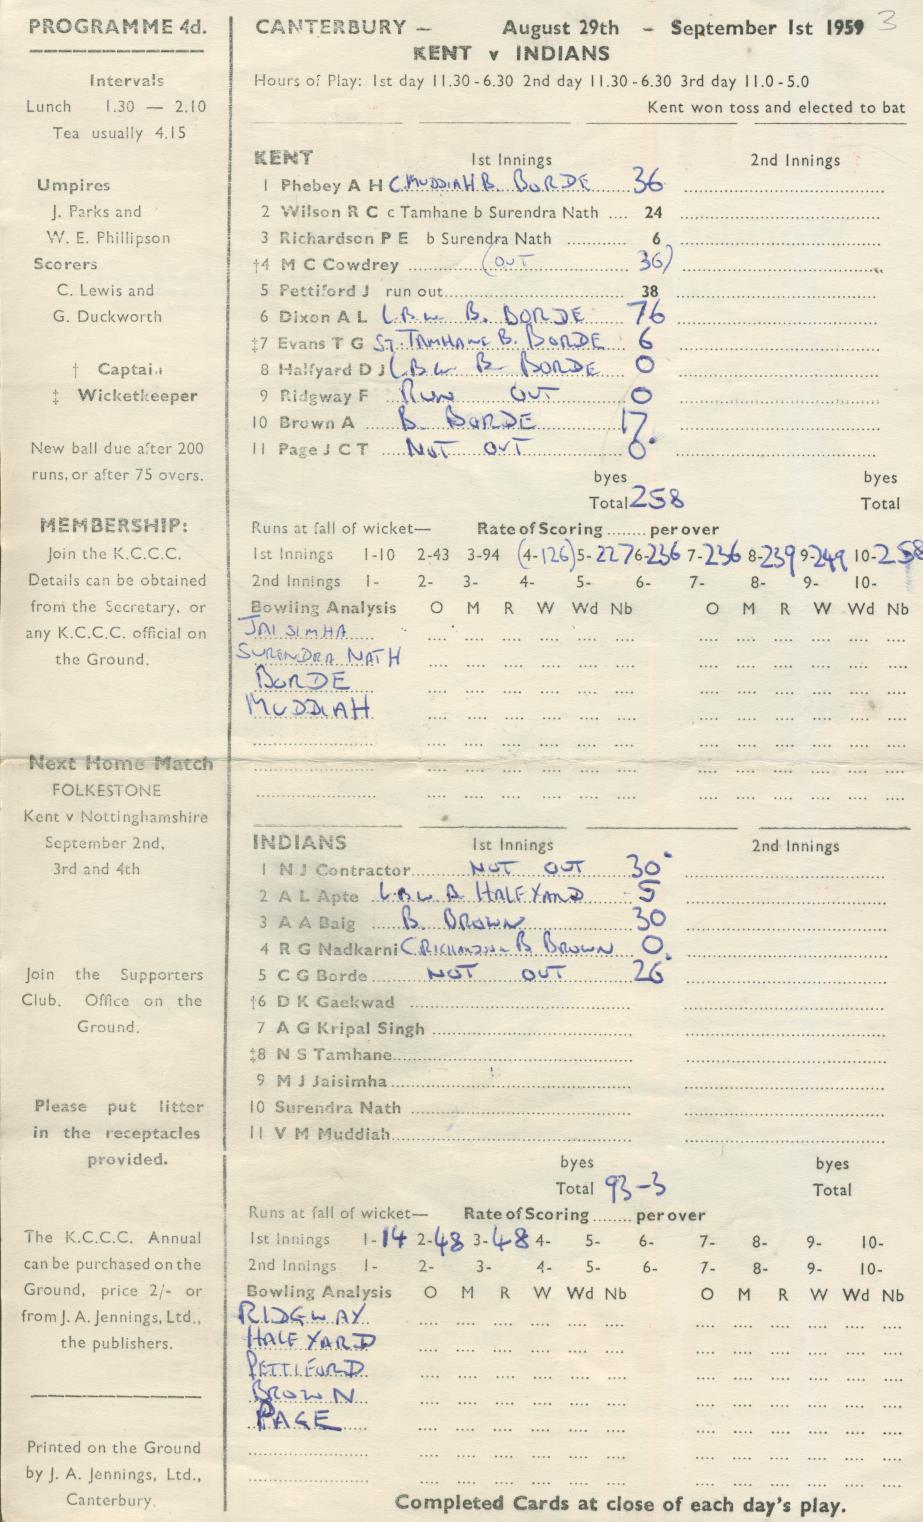 PROGRAMME 4d.
Intervals
Lunch 1.30 — 2.10
Tea usually 4.15
Umpires
J. Parks and
W. E. Phillipson
Scorers
C. Lewis and
G. Duckworth
† Captain
‡ Wicketkeeper
New ball due after 200
runs, or after 75 overs.
MEMBERSHIP:
Join the K.C.C.C.
Details can be obtained
from the Secretary, or
any K.C.C.C. official on
the Ground.
Next Home Match
FOLKESTONE
Kent v Nottinghamshire
September 2nd,
3rd and 4th
Join the Supporters
Club. Office on the
Ground.
Please put litter
in the receptacles
provided.
The K.C.C.C. Annual
can be purchased on the
Ground, price 2/- or
from J. A. Jennings, Ltd.,
the publishers.
Printed on the Ground
by J. A. Jennings, Ltd.,
Canterbury.
CANTERBURY – August 29th – September 1st 1959 3
KENT v INDIANS
Hours of Play: 1st day 11.30-6.30 2nd day 11.30-6.30 3rd day 11.0-5.0
Kent won toss and elected to bat
KENT 1st Innings 2nd Innings
1 Phebey A H C. MUDDIAH B. BORDE 36
2 Wilson R C c Tamhane b Surendra Nath .... 24
3 Richardson P E b Surendra Nath ............ 6
†4 M C Cowdrey (OUT 36)
5 Pettiford J run out 38
6 Dixon A L L.B.W B. BORDE 76
‡7 Evans T G ST. TAMHANE B. BORDE 6
8 Halfyard D J L.B.W B BORDE 0
9 Ridgway F RUN OUT 0
10 Brown A B. BORDE 17
11 Page J C T NOT OUT 0
byes byes
Total 258 Total
Runs at fall of wicket— Rate of Scoring ........ per over
1st Innings 1-10 2-43 3-94 (4-126) 5-227 6-236 7-236 8-239 9-249 10-258
2nd Innings 1- 2- 3- 4- 5- 6- 7- 8- 9- 10-
Bowling Analysis O M R W Wd Nb O M R W Wd Nb
JAISIMHA
SURENDRA NATH
BORDE
MUDDIAH
INDIANS 1st Innings 2nd Innings
1 N J Contractor NOT OUT 30
2 A L Apte L.B.W B HALFYARD 5
3 A A Baig B. BROWN 30
4 R G Nadkarni C RICHARDSON B BROWN 0
5 C G Borde NOT OUT 26
†6 D K Gaekwad
7 A G Kripal Singh
‡8 N S Tamhane
9 M J Jaisimha
10 Surendra Nath
11 V M Muddiah
byes byes
Total 93-3 Total
Runs at fall of wicket— Rate of Scoring ........ per over
1st Innings 1-14 2-48 3-48 4- 5- 6- 7- 8- 9- 10-
2nd Innings 1- 2- 3- 4- 5- 6- 7- 8- 9- 10-
Bowling Analysis O M R W Wd Nb O M R W Wd Nb
RIDGWAY
HALFYARD
PETTIFORD
BROWN
PAGE
Completed Cards at close of each day's play.